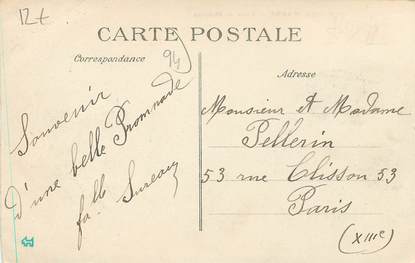 12t
CARTE POSTALE
Correspondance
94
Adresse
Souvenir
d'une belle Promnade
fa^lle Sureau
Monsieur et Madame
Pellerin
53 rue Clisson 53
Paris
(XIIIe)